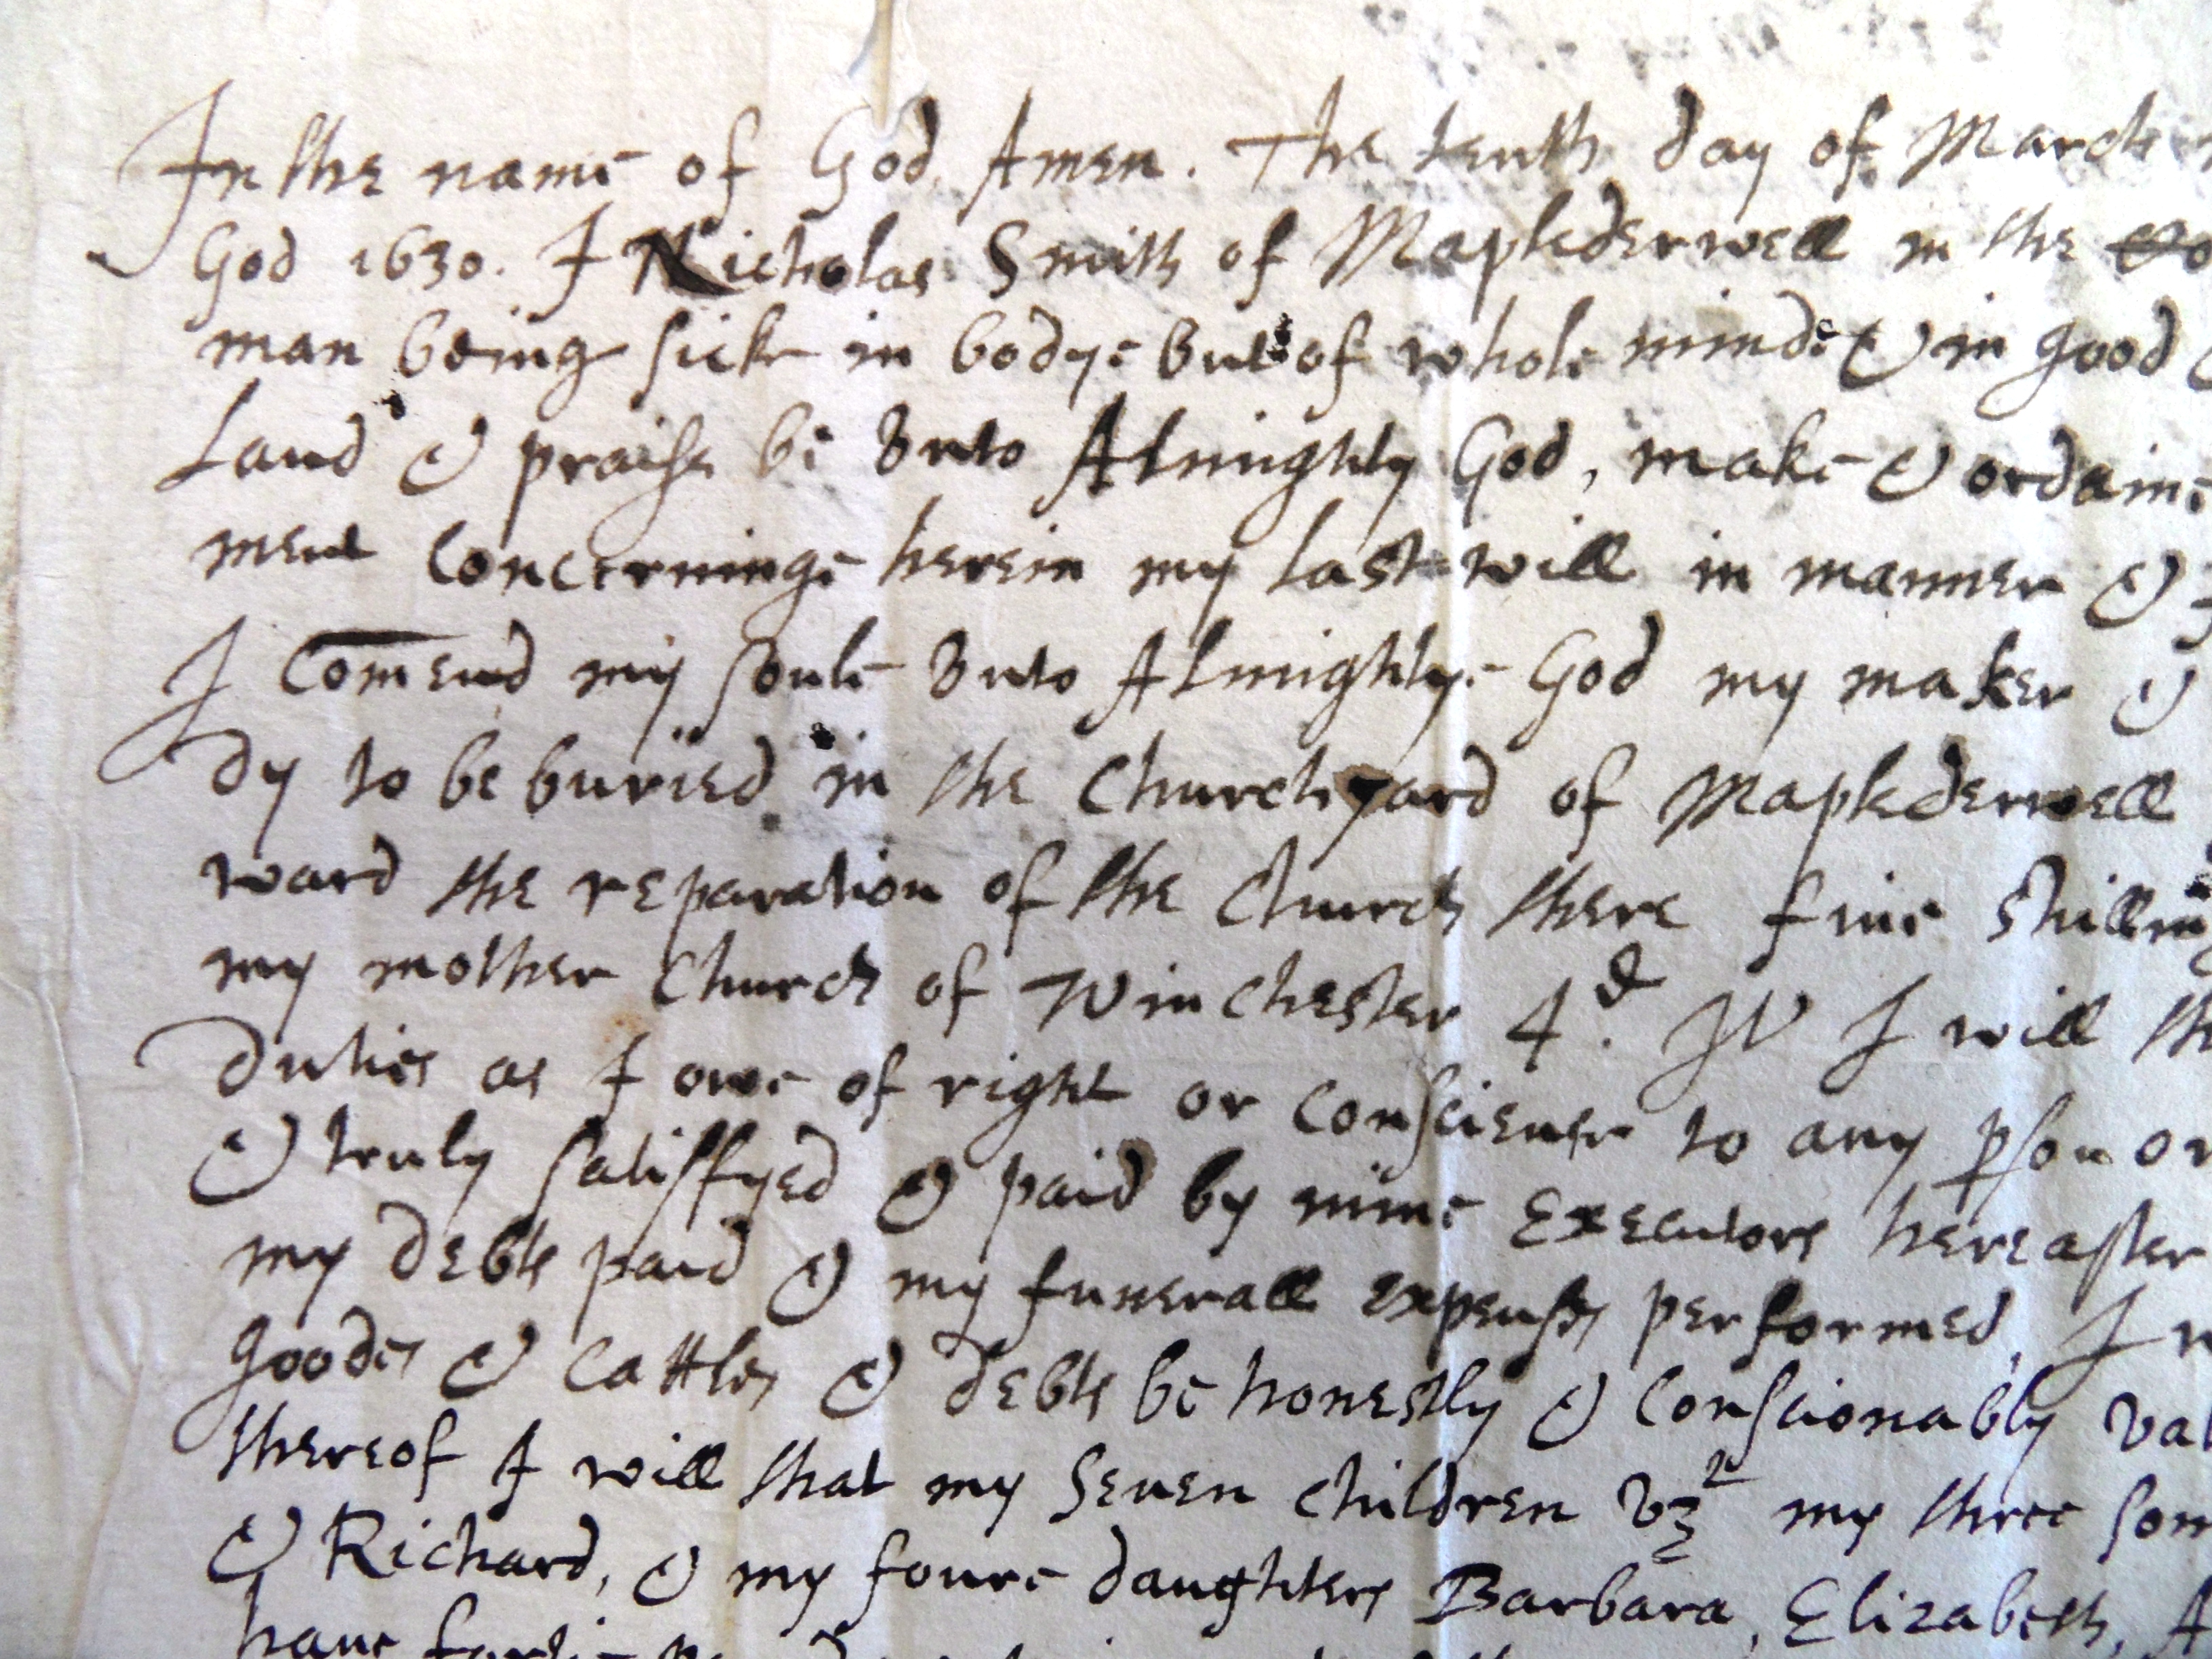 In the name of God Amen. The tenth day of March
God 1630. I Nicholas Smith of Maplederwell in the
man being sick in bodye but of whole minde & in good
Laud & praise be vnto Almighty God, make & ordaine
ment concerninge herein my last will in manner &
I Com̄end my soule vnto Almightye God my maker &
dy to be buried in the Churchyard of Maplederwell
ward the reparation of the Church there fiue shilling
my mother Church of Winchester 4d. It I will th
duties as I owe of right or conscience to any pson or
& truly satisfyed & paid by mine Executors hereafter
my debts paid & my funerall expenses performed, I w
goodes & Cattles & debts be honestly & consionably val
thereof I will that my seuen children vz my three son
& Richard, & my foure daughters Barbara, Elizabeth, A
haue fortie